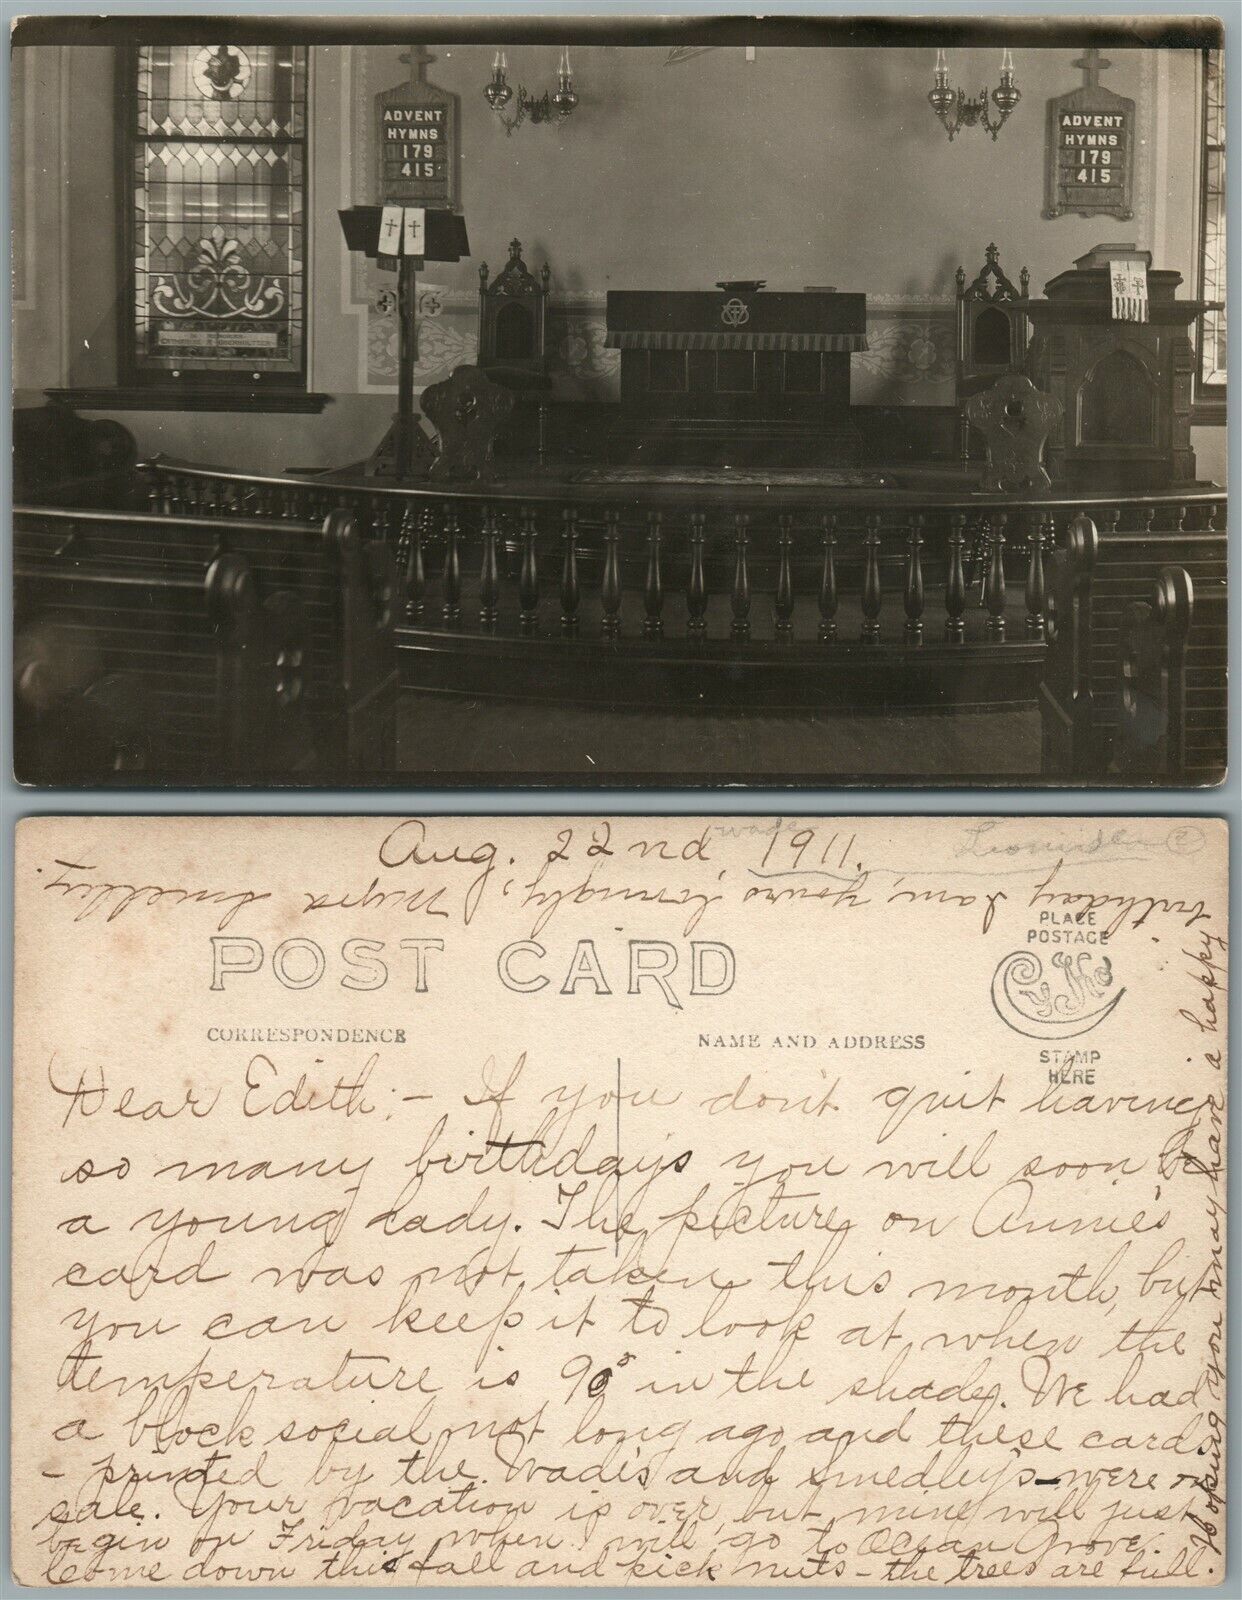 ADVENT
HYMNS
179
415
ADVENT
HYMNS
179
415
Aug. 22nd, 1911.
Wade
POST CARD
CORRESPONDENCE
NAME AND ADDRESS
PLACE
POSTAGE
CYKO
STAMP
HERE
Dear Edith:- If you don't quit having
so many birthdays you will soon be
a young lady. The picture on Annie's
card was not taken this month, but
you can keep it to look at when the
temperature is 90° in the shade. We had
a block social not long ago and these cards
- printed by the Wade's and Smedley's - were on
sale. Your vacation is over, but mine will just
begin on Friday when I will go to Ocean Grove.
Come down this fall and pick nuts - the trees are full.
Hoping you may have a happy
birthday I am, yours lovingly,
Myra Smedley.